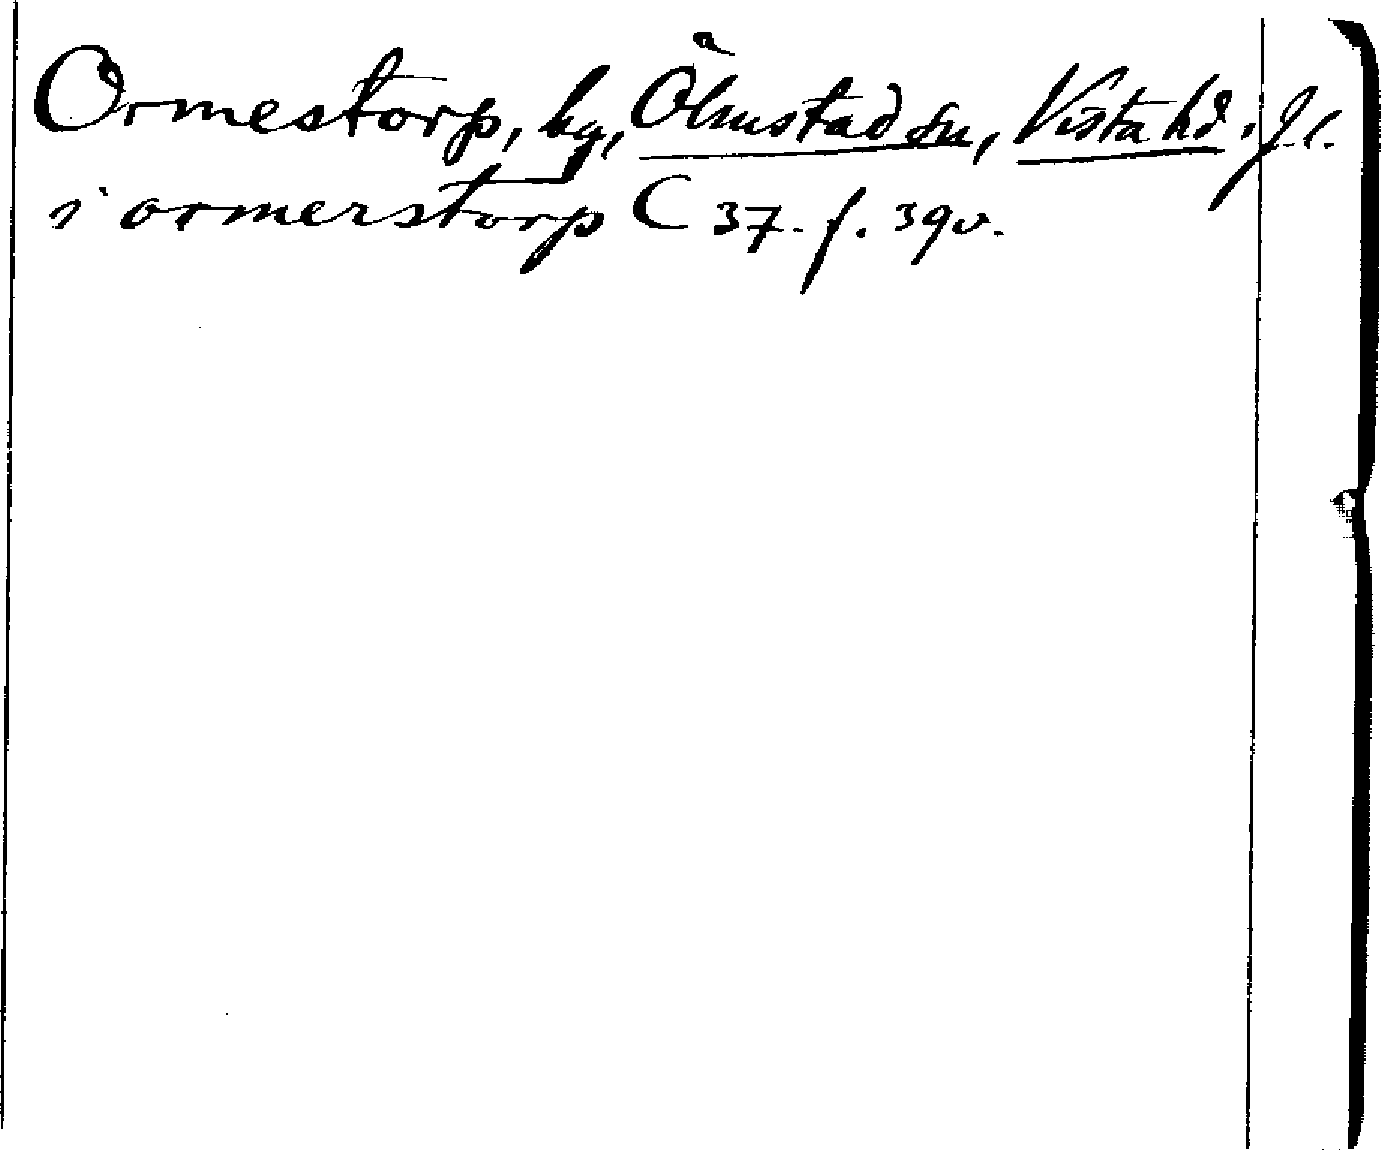 Ormestorp, by, Ölmstad sn, Vista hd, J. l.
i ormerstorp C 37. f. 39v.